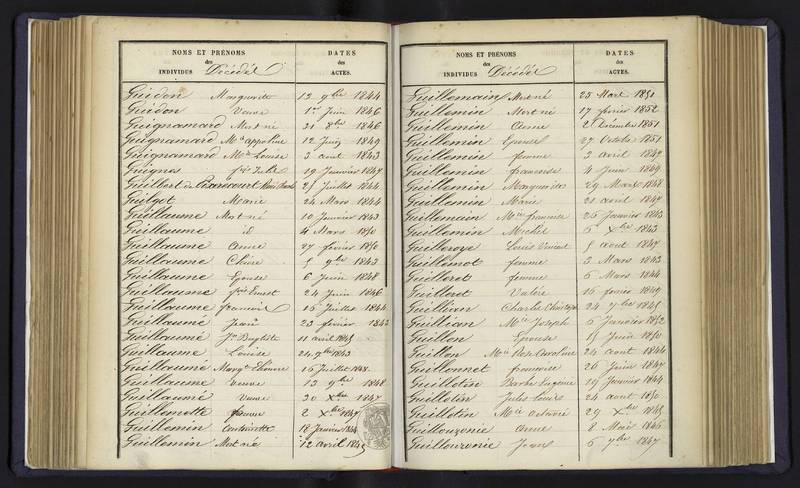 NOMS ET PRÉNOMS
des
INDIVIDUS Décédés
DATES
des
ACTES.
Guidon Marguerite 12 9bre 1844
Guidon Veuve 1er Juin 1846
Guignamard Mort né 21 8bre 1846
Guignamard Mie appoline 12 Juin 1849
Guignamard Mie Louise 3 aout 1843
Guignas 19 Janvier 1847
Guilbert de 25 Juillet 1844
Guilgot Marie 24 Mars 1844
Guillaume Mort né 10 Janvier 1843
Guillaume id 4 Mars 1850
Guillaume anne 27 février 1850
Guillaume Claire 5 9bre 1843
Guillaume Epouse 6 Juin 1848
Guillaume fois Ernest 24 Juin 1846
Guillaume francois 15 Juillet 1844
Guillaume Jean 23 février 1842
Guillaume Jn Baptiste 11 avril 1845
Guillaume Louise 24 9bre 1843
Guillaume Margte 16 Juillet 1848
Guillaume Veuve 13 9bre 1848
Guillaume Veuve 20 Xbre 1847
Guillemette femme 2 Xbre 1847
Guillemin Antoinette 18 Janvier 1844
Guillemin Mort né 12 avril 1845
NOMS ET PRÉNOMS
des
INDIVIDUS Décédés
DATES
des
ACTES.
Guillemain Mort né 25 Mars 1851
Guillemin Mort né 17 février 1852
Guillemin Anne 2 Décembre 1851
Guillemin 27 Octobre 1851
Guillemin femme 3 avril 1847
Guillemin francoise 4 Juin 1849
Guillemin Marguerite 29 Mars 1848
Guillemin Marie 21 avril 1847
Guillemain Mie francoise 26 Janvier 1843
Guillemin Michel 6 Xbre 1843
Guilleroye Louis Vincent 5 aout 1847
Guillemot femme 3 Mars 1843
Guilleret femme 6 Mars 1844
Guilleret Valérie 16 février 1849
Guillien Charles Christophe 24 7bre 1845
Guillian Mie Joseph 6 Janvier 1852
Guillon Epouse 15 Juin 1850
Guillon Mie Rose Caroline 24 aout 1844
Guillonnet francoise 26 Juin 1847
Guillotin Barbe Eugénie 19 Janvier 1844
Guillotin Jules Louis 24 aout 1850
Guillotin Mie Octavie 29 Xbre 1845
Guillouzonie anne 8 Mai 1846
Guillouzonie Jean 6 7bre 1847